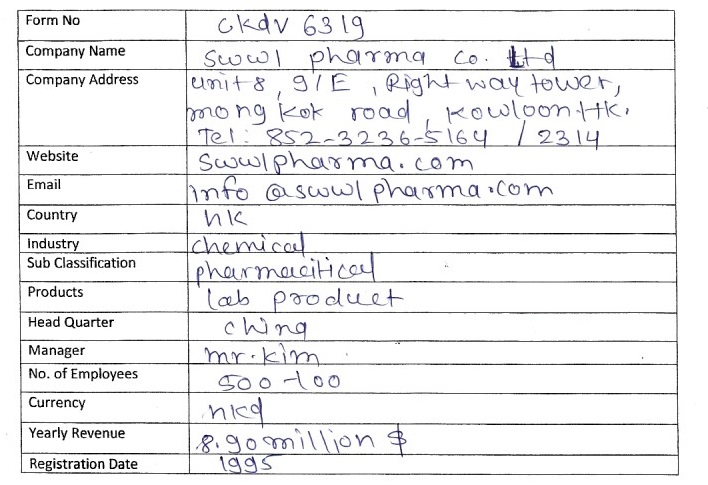 Form No ckdv 6319
Company Name swwl pharma co. Ltd
Company Address unit 8, 9/E, Right way tower,
mong kok road, kowloon HK.
Tel: 852-3236-5164 / 2314
Website swwlpharma.com
Email info@swwlpharma.com
Country hk
Industry chemical
Sub Classification pharmacitical
Products lab product
Head Quarter china
Manager mr. kim
No. of Employees 500-100
Currency hkd
Yearly Revenue 8.90 million $
Registration Date 1995